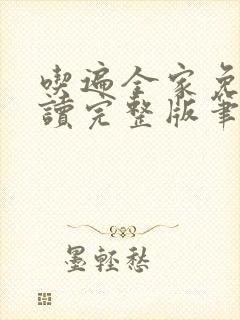 喫遍全家免
讀完整版筆
墨輕愁